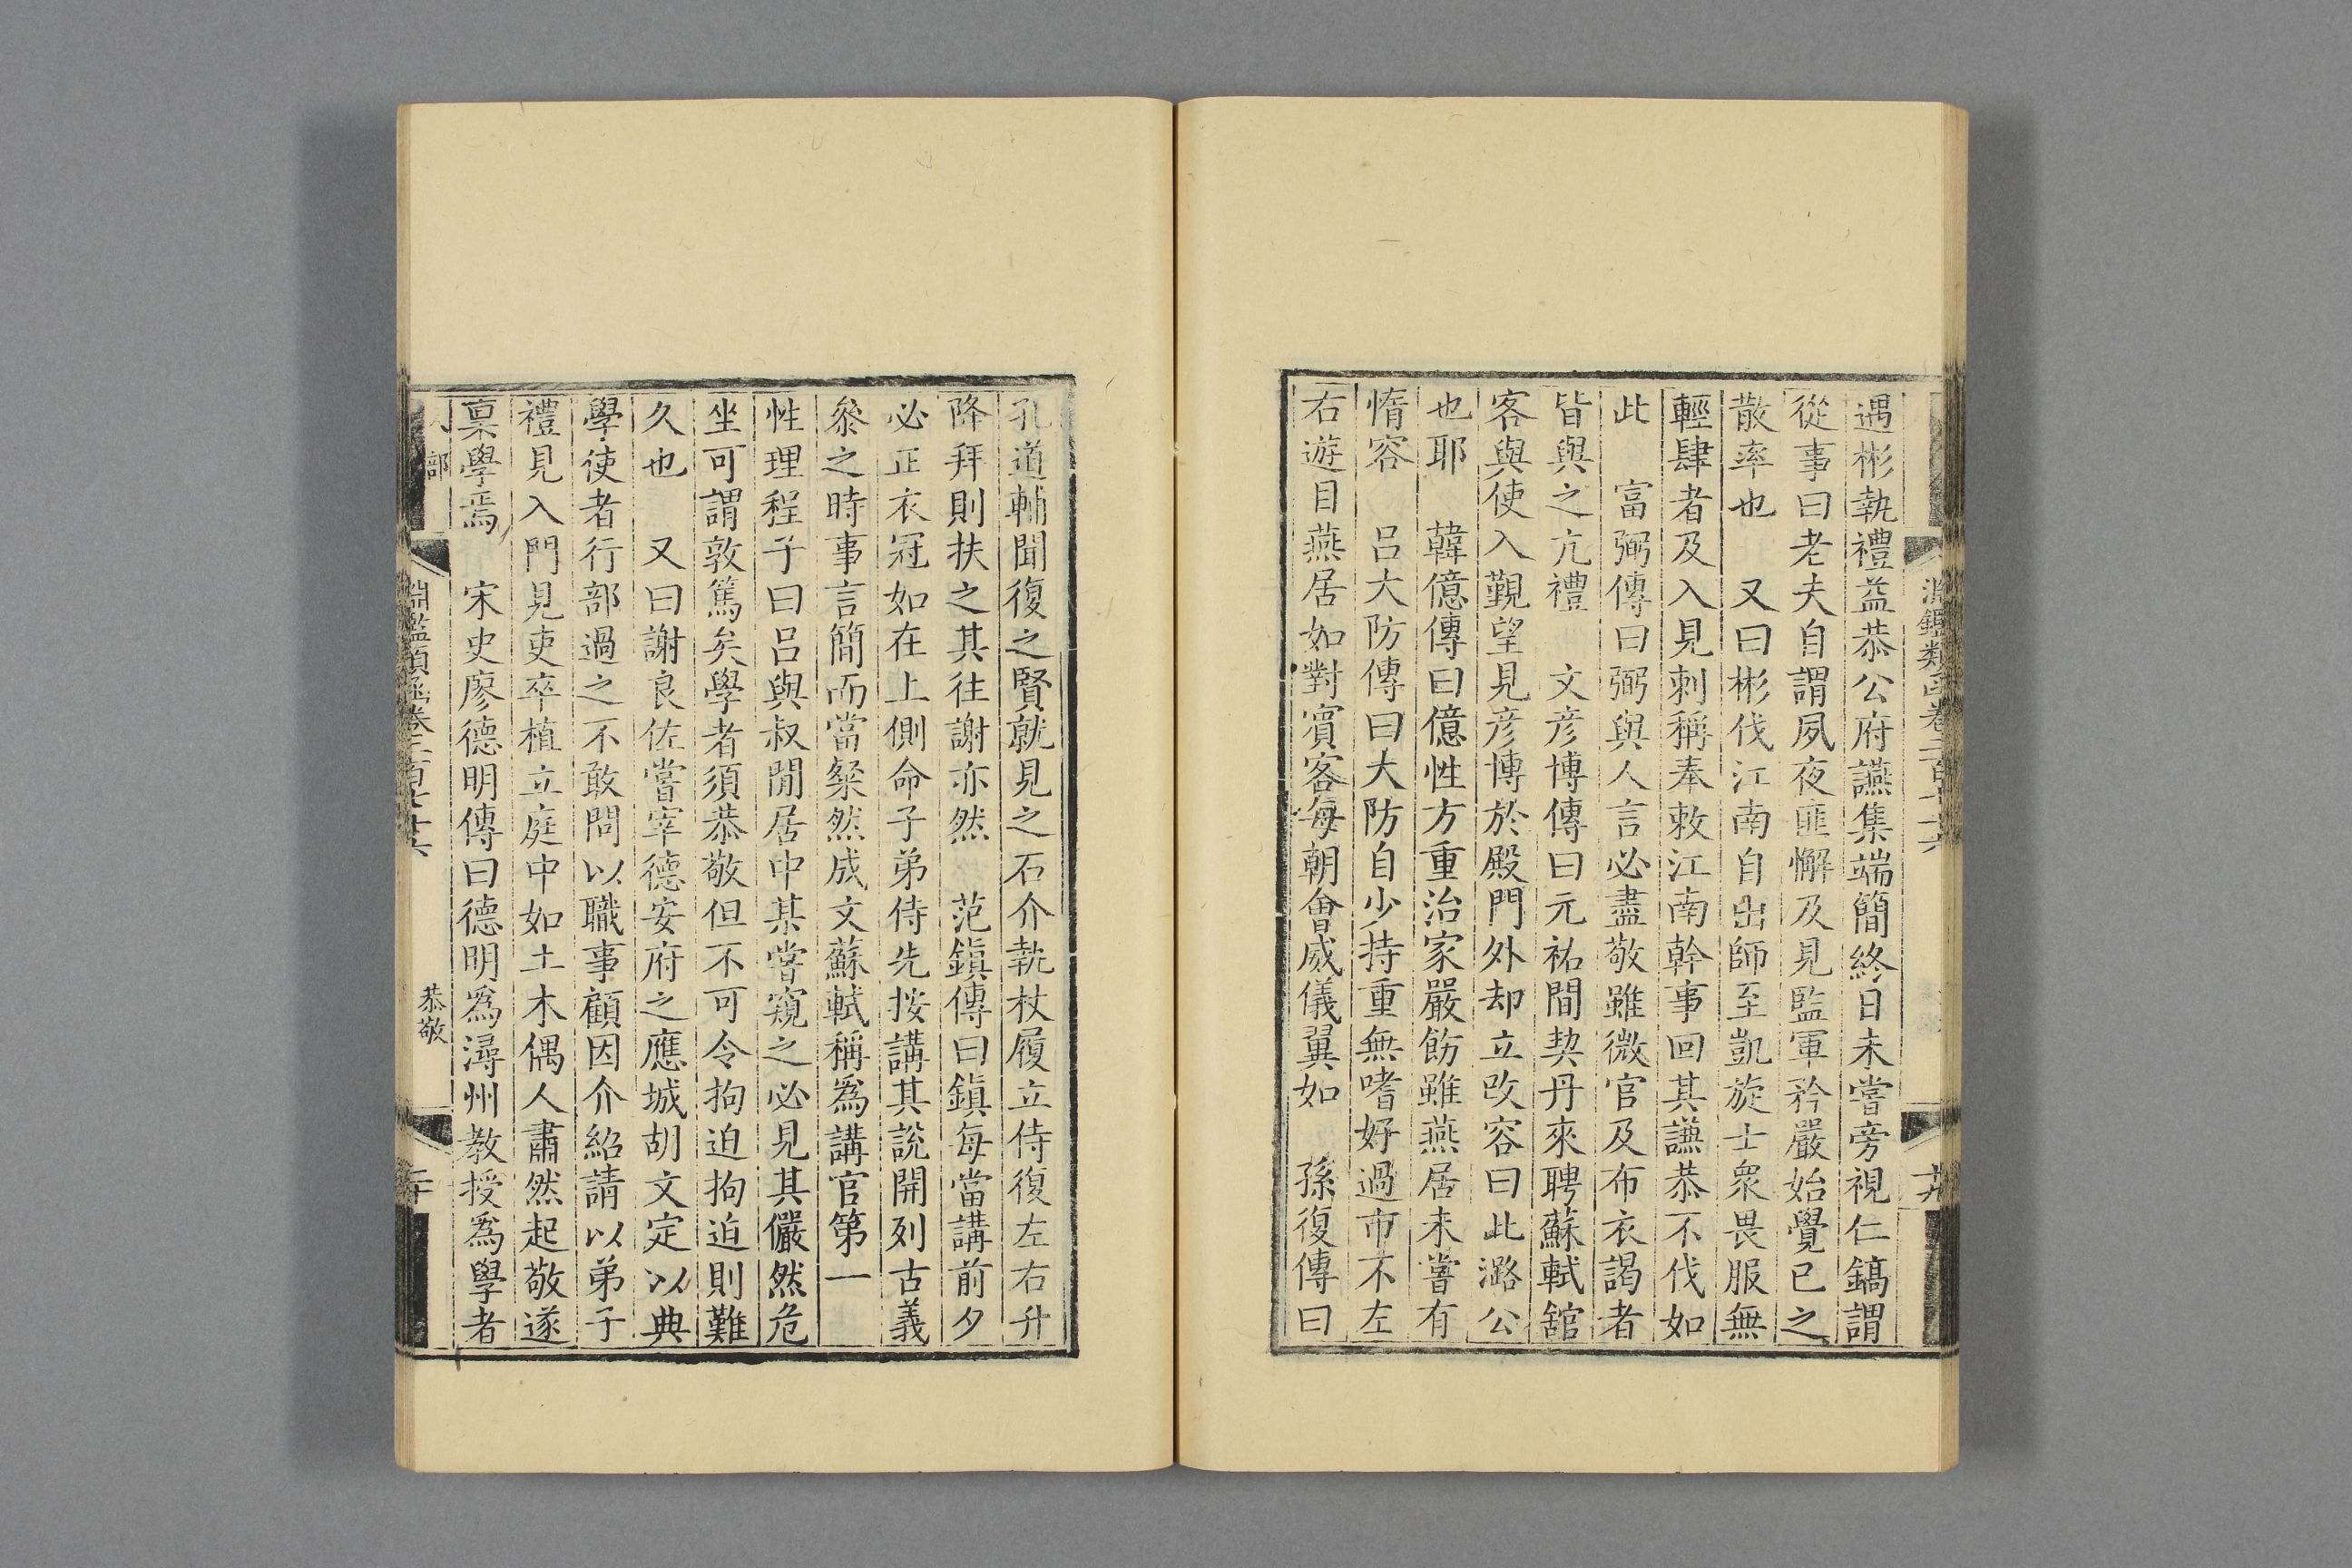 遇彬執禮益恭公府讌集端簡終日未嘗旁視仁鎬謂
從事曰老夫自謂夙夜匪懈及見監軍矜嚴始覺已之
散率也　又曰彬伐江南自出師至凱旋士衆畏服無
輕肆者及入見刺稱奉敕江南幹事回其謙恭不伐如
此　富弼傳曰弼與人言必盡敬雖微官及布衣謁者
皆與之亢禮　文彦博傳曰元祐間契丹來聘蘇軾舘
客與使入覲望見彦博於殿門外却立改容曰此潞公
也耶　韓億傳曰億性方重治家嚴飭雖燕居未嘗有
惰容　吕大防傳曰大防自少持重無嗜好過市不左
右遊目燕居如對賓客每朝會威儀翼如　孫復傳曰
孔道輔聞復之賢就見之石介執杖履立侍復左右升
降拜則扶之其往謝亦然　范鎭傳曰鎭每當講前夕
必正衣冠如在上側命子弟侍先按講其說開列古義
叅之時事言簡而當粲然成文蘇軾稱爲講官第一
性理程子曰吕與叔閒居中某嘗窺之必見其儼然危
坐可謂敦篤矣學者須恭敬但不可令拘迫拘迫則難
久也　又曰謝良佐嘗宰德安府之應城胡文定以典
學使者行部過之不敢問以職事顧因介紹請以弟子
禮見入門見吏卒植立庭中如土木偶人肅然起敬遂
稟學焉　宋史廖德明傳曰德明爲潯州教授爲學者
部
淵鑑類函卷二百七十六
恭敬
二十
淵鑑類函卷二百七十六
十九